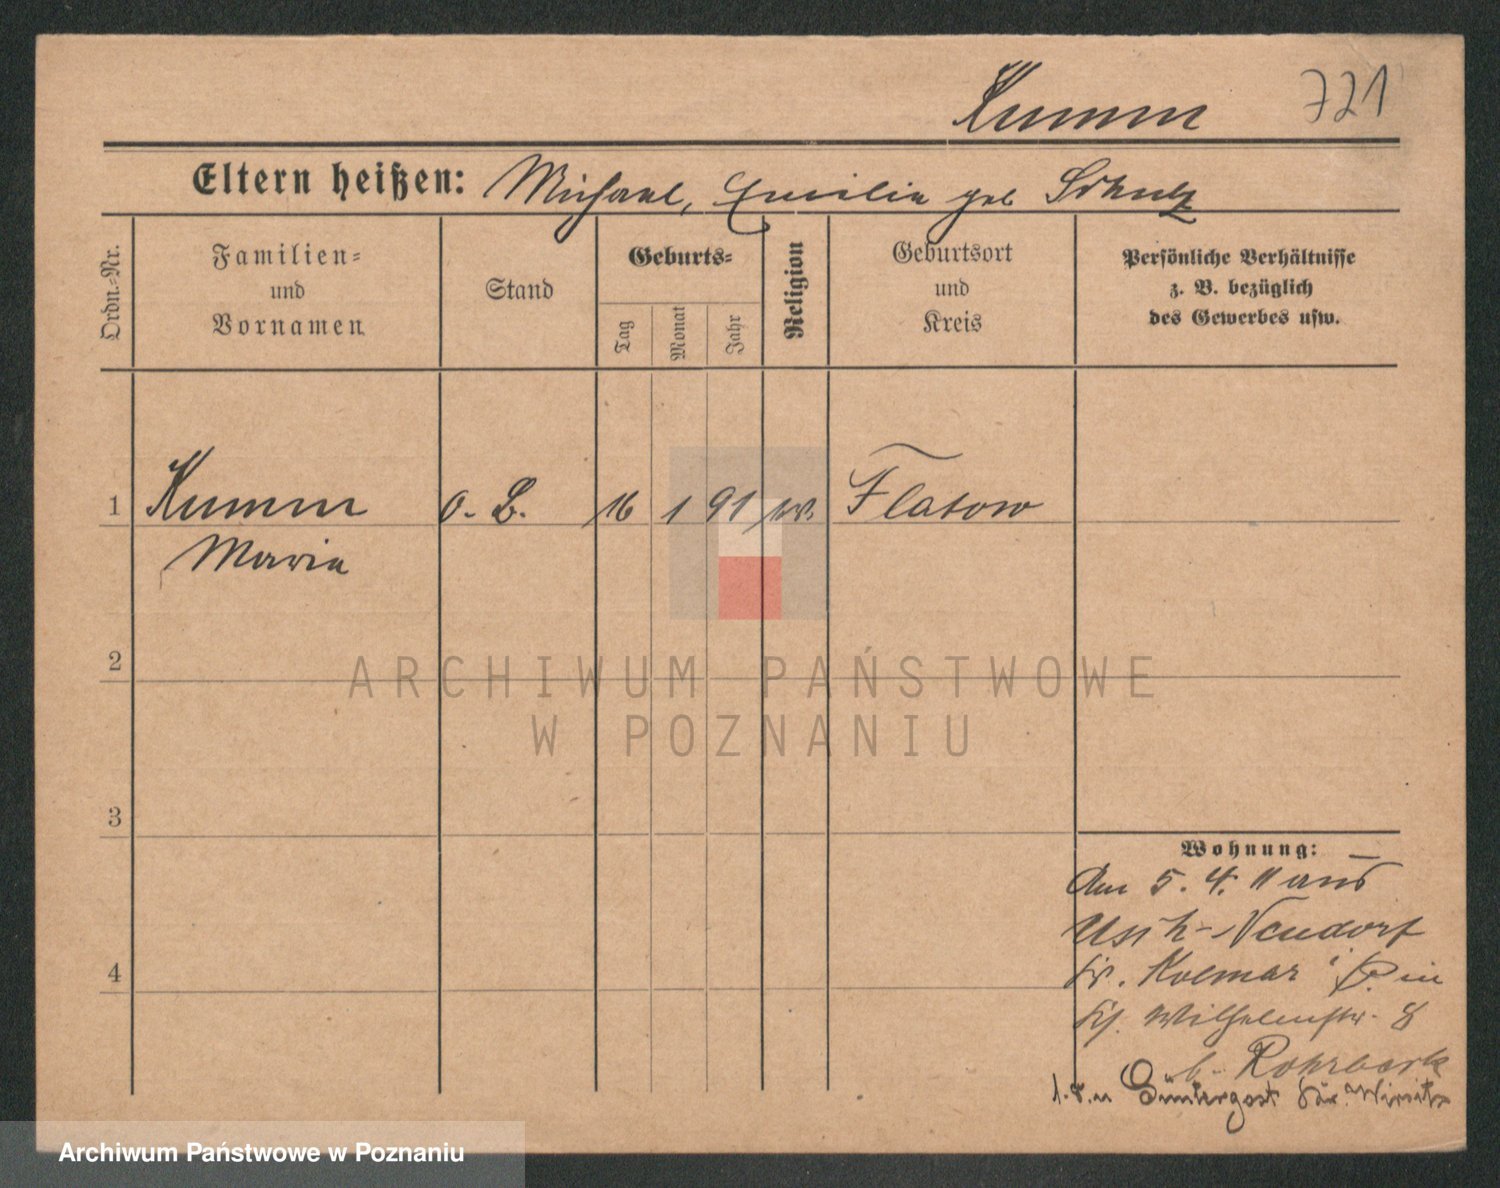 Kumm 721
Eltern heißen: Michael, Emilie geb Schulz
Ordn.-Nr.
Familien-
und
Vornamen
Stand
Geburts-
Tag
Monat
Jahr
Religion
Geburtsort
und
Kreis
Persönliche Verhältnisse
z. B. bezüglich
des Gewerbes usw.
1 Kumm o. B. 16 1 91 Flatow
Maria
2
3
4
Wohnung:
Am 5. 4. 11 aus
Usch-Neudorf
Kr. Kolmar i P. in
Wilhelmstr. 8
b. Rohrbeck
Güntergost Kr. Wirsitz
ARCHIWUM PAŃSTWOWE
W POZNANIU
Archiwum Państwowe w Poznaniu